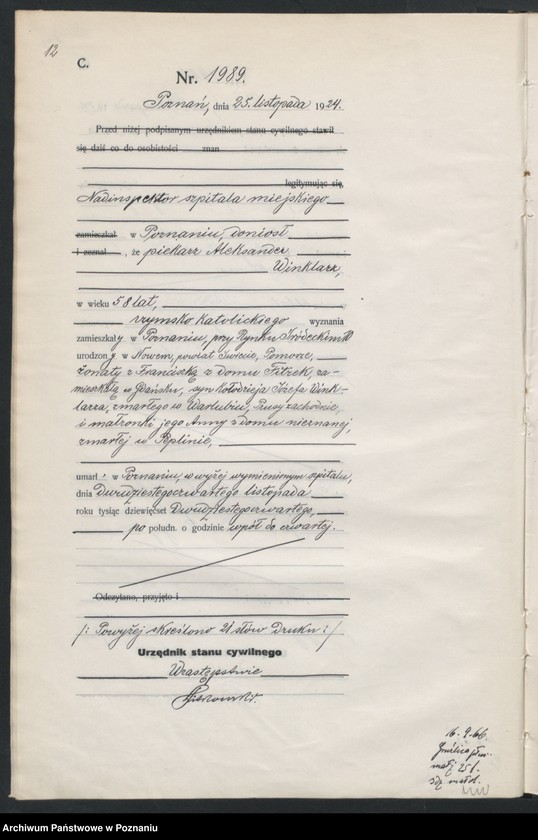 12
C.
Nr. 1989.
Poznań, dnia 25. listopada 1924.
Przed niżej podpisanym urzędnikiem stanu cywilnego stawił
się dziś co do osobistości znan
legitymując się,
Nadinspektor szpitala miejskiego
zamieszkał w Poznaniu, doniosł
i zeznał, że piekarz Aleksander
Winklarz,
w wieku 58 lat,
rzymsko katolickiego wyznania
zamieszkały w Poznaniu, przy Rynku Śródeckim
urodzony w Nowem, powiat Świecie, Pomorze,
żonaty z Franciszką z domu Fitzek, za-
mieszkałą w Gdańsku, syn kołodzieja Józefa Wink-
larza, zmarłego w Warlubiu, Prusy zachodnie,
i małżonki jego Anny z domu nieznanej,
zmarłej w Pelplinie,
umarł w Poznaniu, w wyżej wymienionym szpitalu,
dnia Dwudziestegoczwartego listopada
roku tysiąc dziewięćset Dwudziestegoczwartego,
po połudn. o godzinie wpół do czwartej.
Odczytano, przyjęto i
/: Powyżej skreślono 21 słów druku :/
Urzędnik stanu cywilnego
W zastępstwie
16.9.66
małż 251
Archiwum Państwowe w Poznaniu